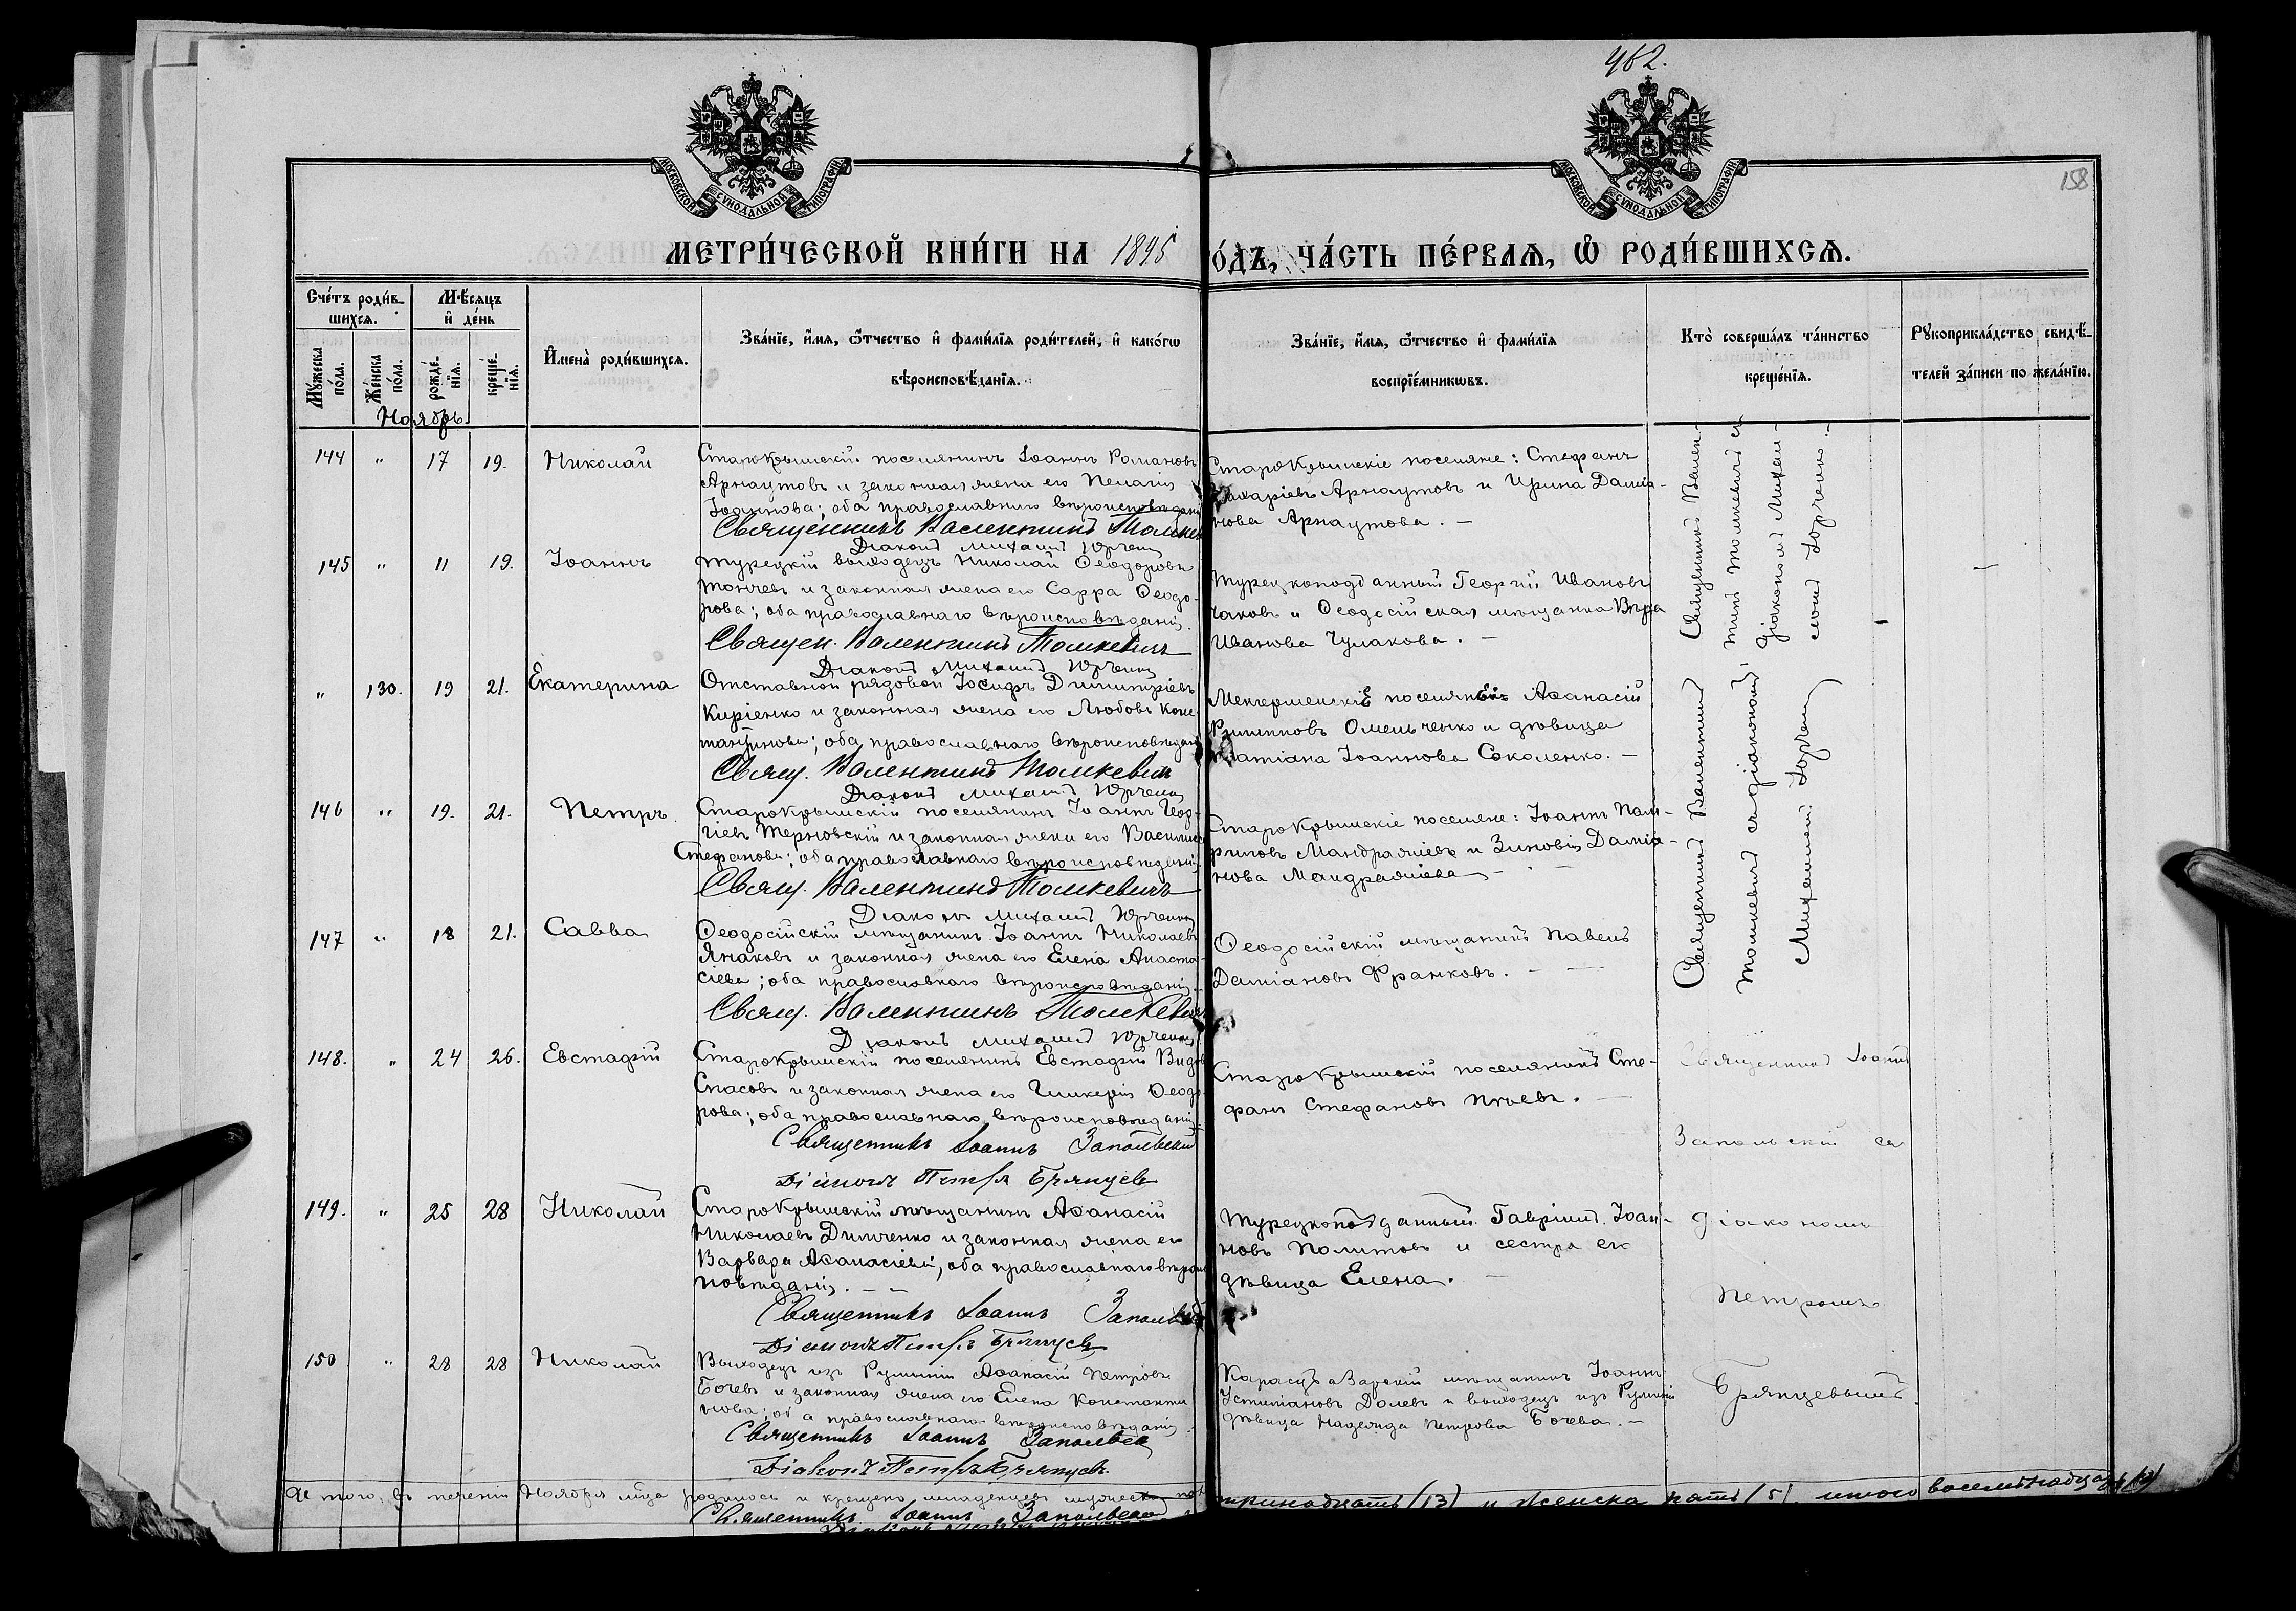 462.
158
МОСКОВСКОЙ СѴНОДАЛЬНОЙ ТИПОГРАФІИ
МОСКОВСКОЙ СѴНОДАЛЬНОЙ ТИПОГРАФІИ
МЕТРИ́ЧЕСКОЙ КНИ́ГИ НА 1895
О́ДЪ, ЧА́СТЬ ПЕ́РВАЯ, Ѡ҆ РОДИ́ВШИХСЯ.
Сче́тъ роди́в-
шихся.
Мѣ́сяцъ
и҆ де́нь
Мꙋ́жеска
по́ла.
Же́нска
по́ла.
рожде́-
нія.
креще́-
нія.
И҆мена̀ роди́вшихся.
Зва́ніе, и҆́мя, ѻ҆́тчество и҆ фами́лія роди́телей, и҆ како́гѡ
вѣроисповѣ́данія.
Зва́ніе, и҆́мя, ѻ҆́тчество и҆ фами́лія
воспрїе́мникѡвъ.
Кто̀ соверша́лъ та́инство
креще́нія.
Рꙋкоприкла́дство свидѣ́-
телей за́писи по жела́нію.
Ноябрь.
144 " 17 19. Николай
Старокрымскій поселянинъ Іоаннъ Романовъ
Арнаутовъ и законная жена его Пелагія
Іоаннова; оба православнаго вѣроисповѣданія
Священникъ Валентинъ Томкев
Діаконъ Михаилъ Юрченко
Старокрымскіе поселяне: Стефанъ
Захаріевъ Арнаутовъ и Ирина Даміа-
нова Арнаутова. —
145 " 11 19. Іоаннъ
Турецкій выходецъ Николай Ѳеодоровъ
Тончевъ и законная жена его Сарра Ѳеодо-
рова; оба православнаго вѣроисповѣданія.
Священ. Валентинъ Томкевичъ
Діаконъ Михаилъ Юрченко
Турецкоподданный Георгій Ивановъ
Чаковъ и Ѳеодосійская мѣщанка Вѣра
Иванова Чумакова. —
Священникъ Вален-
тинъ Томкевичъ съ
діакономъ Михаи-
ломъ Юрченко. —
" 130. 19 21. Екатерина
Отставной рядовой Іосифъ Димитріевъ
Киріенко и законная жена его Любовь Конс-
тантинова; оба православнаго вѣроисповѣдан
Свящ. Валентинъ Томкевичъ
Діаконъ Михаилъ Юрченко
Аѳанасій
Филипповъ Омельченко и дѣвица
Татіана Іоаннова Соколенко. —
146 " 19. 21. Петръ
Старокрымскій поселянинъ Іоаннъ Геор-
гіевъ Терновскій и законная жена его Василис
Стефанова; оба православнаго вѣроисповѣданія
Свящ. Валентинъ Томкевичъ
Діаконъ Михаилъ Юрченко
Старокрымскіе поселяне: Іоаннъ Пам-
филовъ Мандражіевъ и Зиновія Даміа-
нова Мандражіева —
Священникъ Валентинъ
Томкевичъ съ діакономъ
Михаиломъ Юрченко
147 " 18 21. Савва
Ѳеодосійскій мѣщанинъ Іоаннъ Николаевъ
Янаковъ и законная жена его Елена Анаста-
сіева; оба православнаго вѣроисповѣданія.
Свящ. Валентинъ Томкевичъ
Діаконъ Михаилъ Юрченко
Ѳеодосійскій мѣщанинъ Павелъ
Даміановъ Франковъ. —
148. " 24 26. Евстафій
Старокрымскій поселянинъ Евстафій Видов
Спасовъ и законная жена его Гликерія Ѳеодо-
рова; оба православнаго вѣроисповѣданія.
Священникъ Іоаннъ Запольскій
Діаконъ Петръ Брянцевъ
Старокрымскій поселянинъ Сте-
фанъ Стефановъ —
Священникъ Іоаннъ
Запольскій съ
149. " 25 28 Николай
Старокрымскій мѣщанинъ Аѳанасій
Николаевъ Димченко и законная жена его
Варвара Аѳанасіева, оба православнаго вѣроис
повѣданія. —
Священникъ Іоаннъ Запольскій
Діаконъ Петръ Брянцевъ
Турецкоподданный Гавріилъ Іоан-
новъ Политовъ и сестра его
дѣвица Елена. —
діакономъ
Петромъ
150 " 28 28 Николай
Выходецъ изъ Румыніи Аѳанасій Петровъ
Бочевъ и законная жена его Елена Константи
нова; оба православнаго вѣроисповѣданія.
Священникъ Іоаннъ Запольскій
Діаконъ Петръ Брянцевъ.
Карасубазарскій мѣщанинъ Іоаннъ
Устиніановъ Долевъ и выходецъ изъ Румыніи
дѣвица Надежда Петрова Бочева. —
Брянцевымъ
А того, въ теченіи Ноября мца родилось и крещено младенцевъ мужеска пол
тринадцать (13) и женска пять (5), итого восемнадцать (18)
Священникъ Іоаннъ Запольскій